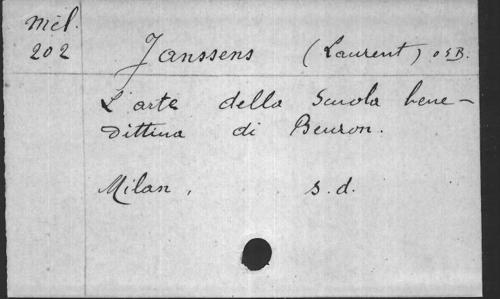 Mél.
202
Janssens (Laurent) OSB.
L'arte della Scuola bene-
dittina di Beuron.
Milan, s.d.